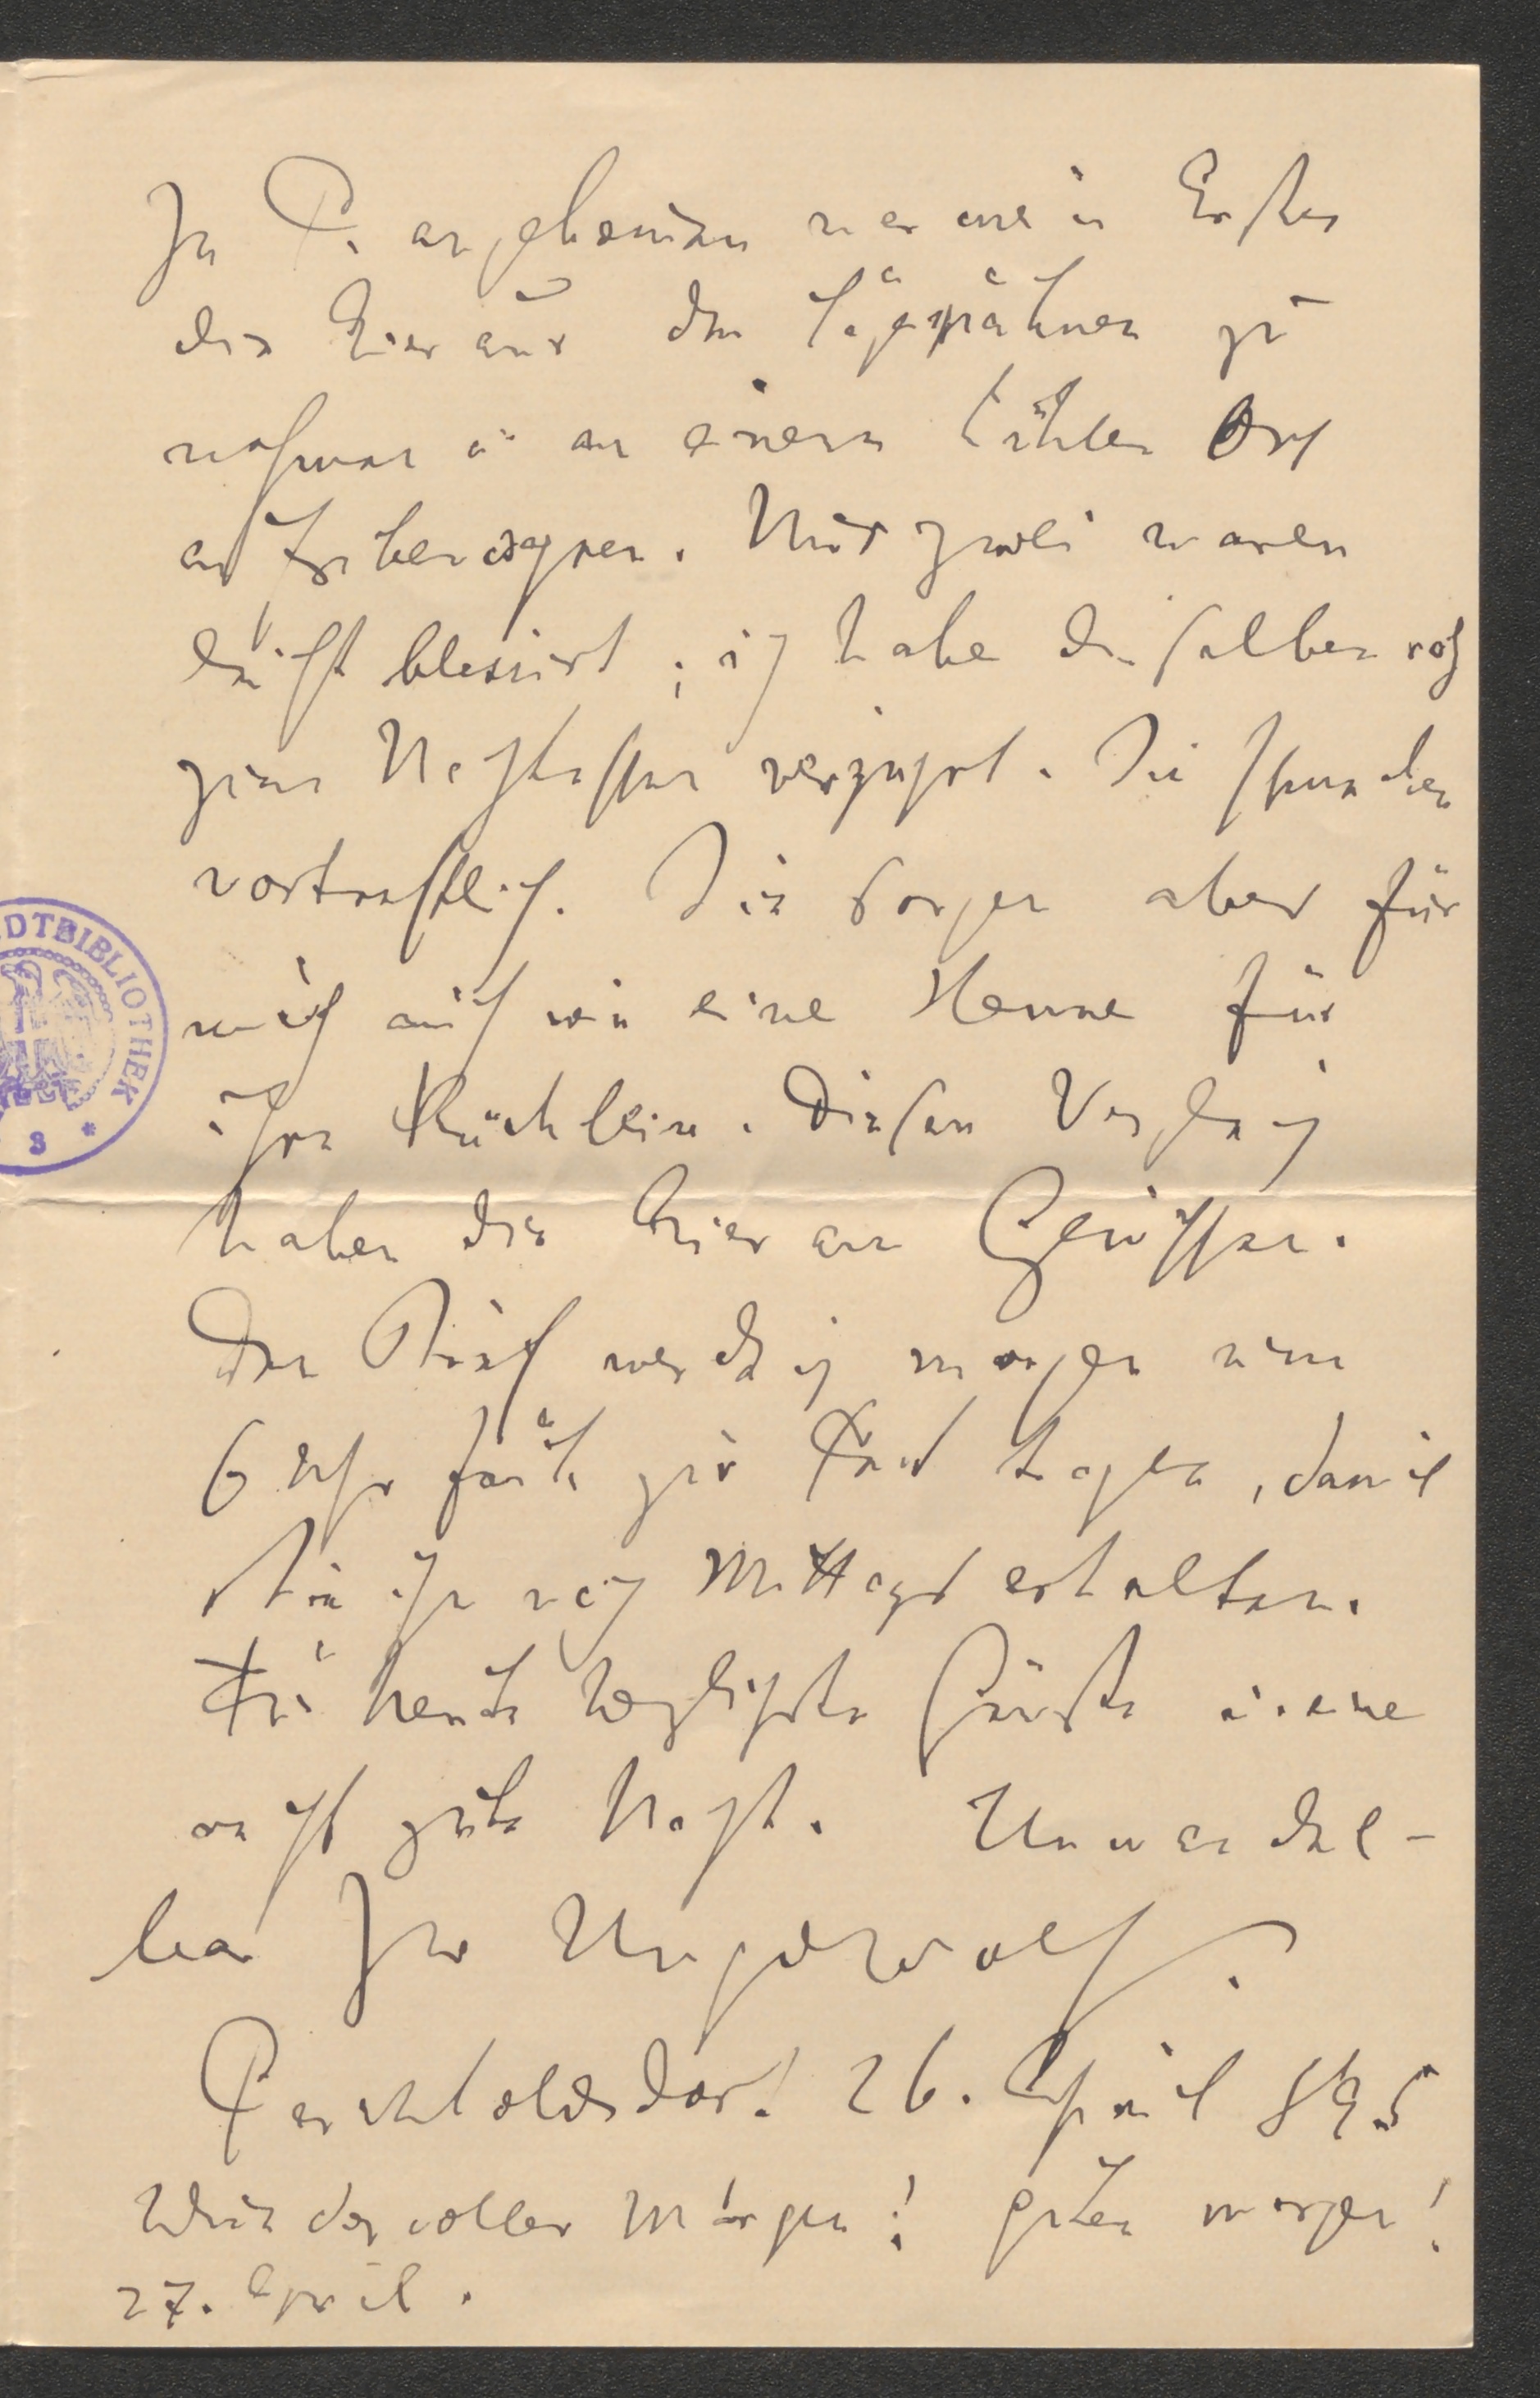 In P. angekommen war mein Erstes
die Eier aus den Sägespähnen zu
nehmen u. an einem kühlen Ort
aufzubewahren. Nur zwei waren
leicht blessirt; ich habe dieselben noch
zum Nachtessen verzehrt. Sie schmeckten
vortrefflich. Sie sorgen aber für
mich auch wie eine Henne für
ihre Küchlein. Diesen Vergleich
haben die Eier am Gewissen.
Den Brief werde ich morgen um
6 Uhr früh zur Post tragen, damit
Sie ihn noch Mittags erhalten.
Für heute herzlichste Grüsse u. eine
recht gute Nacht. Unwandel-
bar Ihr Hugo Wolf.
Perchtoldsdorf 26. April 895
Wundervoller Morgen! guten morgen!
27. April.
STADTBIBLIOTHEK